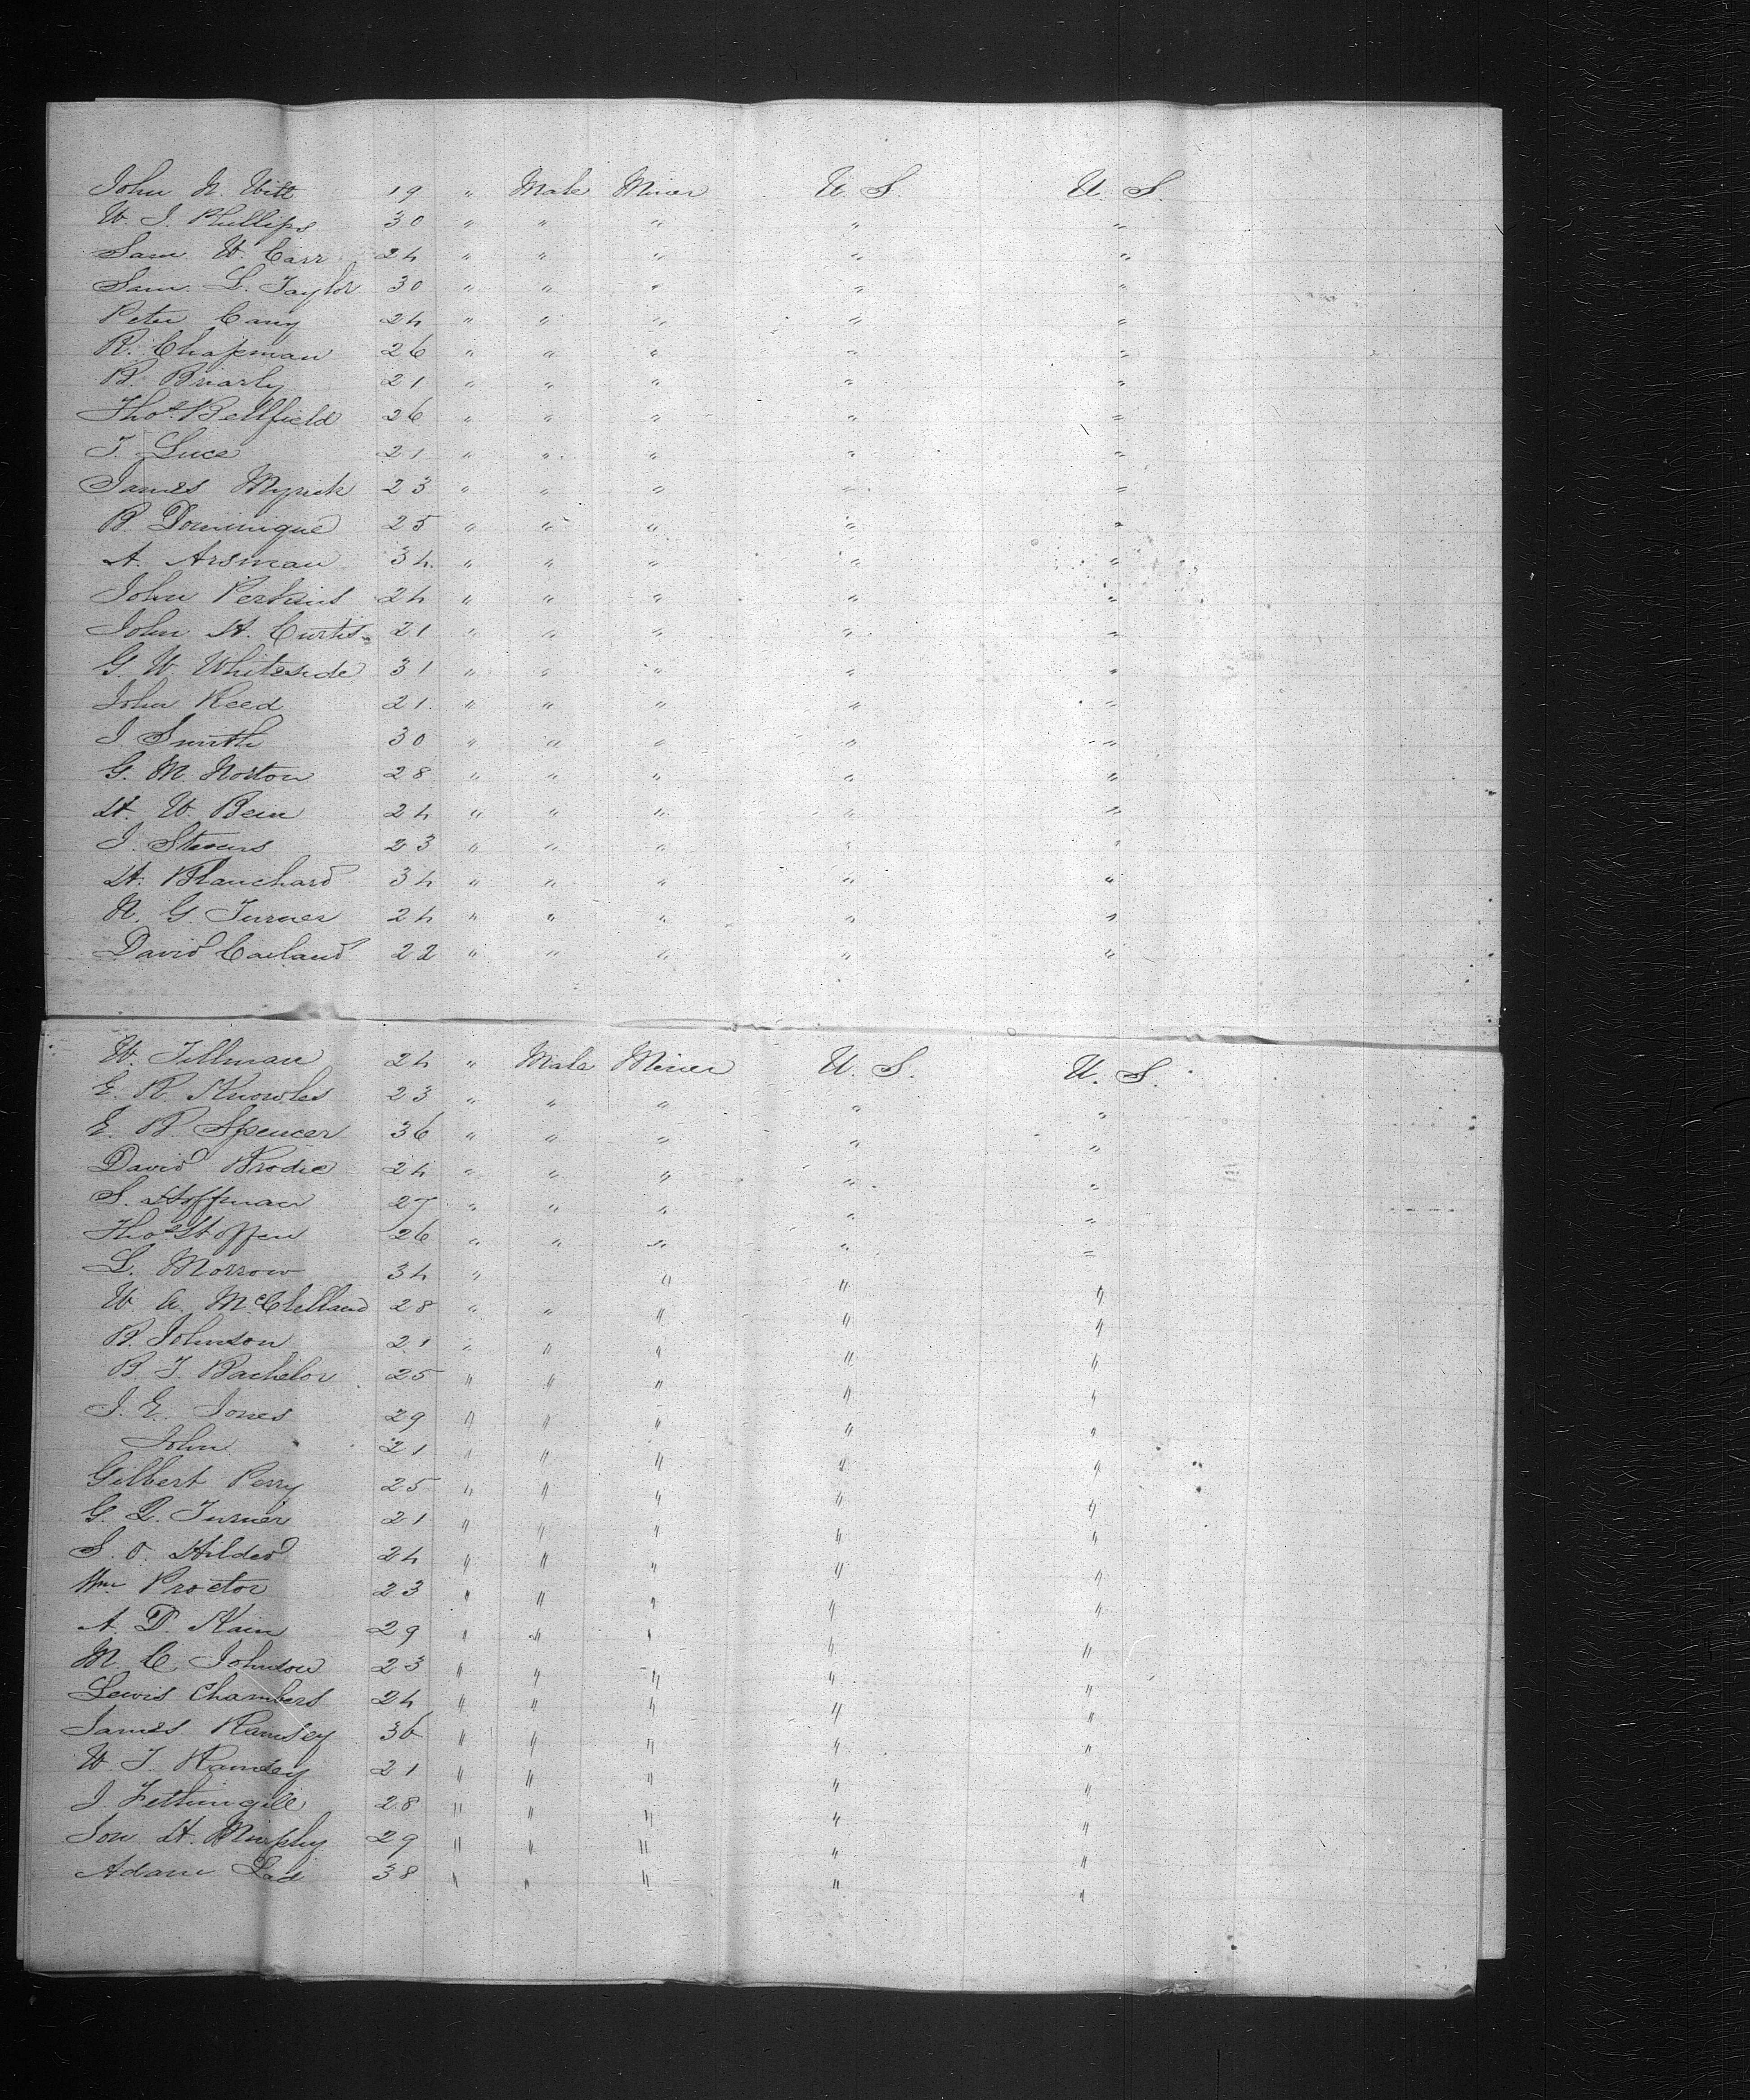 John N. Witt 19 " Male Miner U. S. U. S.
W. J. Phillips 30 " " " " "
Sam W. Carr 24 " " " " "
Sam. L. Taylor 30 " " " " "
Peter Cany 24 " " " " "
R. Chapman 26 " " " " "
B. Briarly 21 " " " " "
Thos Bellfield 26 " " " " "
T. Luce 21 " " " " "
James Myrick 23 " " " " "
B. Dominique 25 " " " " "
A. Arsman 34 " " " " "
John Perkins 24 " " " " "
John H. Curtis 21 " " " " "
G. W. Whiteside 31 " " " " "
John Reed 21 " " " " "
J. Smith 30 " " " " "
G. M. Norton 28 " " " " "
H. W. Bein 24 " " " " "
J. Stevens 23 " " " " "
H. Blanchard 34 " " " " "
N. G. Turner 24 " " " " "
David Cailand 22 " " " " "
W. Tillman 24 " Male Miner U. S. U. S.
E. R. Knowles 23 " " " " "
E. B. Spencer 36 " " " " "
David Brodie 24 " " " " "
S. Hoffman 27 " " " " "
Thos Hoffen 26 " " " " "
L. Morrow 34 " " " "
W. A. McClelland 28 " " " " "
B. Johnson 21 " " " " "
B. T. Bachelor 25 " " " " "
J. E. Jones 29 " " " " "
John 21 " " " " "
Gilbert Perry 25 " " " " "
G. L. Turner 21 " " " " "
S. O. Hilded 24 " " " " "
Wm Proctor 23 " " " " "
A. D. Kain 29 " " " " "
M. C. Johnson 23 " " " " "
Lewis Chambers 24 " " " " "
James Ramsey 36 " " " " "
W. T. Ramsey 21 " " " " "
J. Fettingill 28 " " " " "
Jon H. Murphy 29 " " " " "
Adam Lad 38 " " " " "